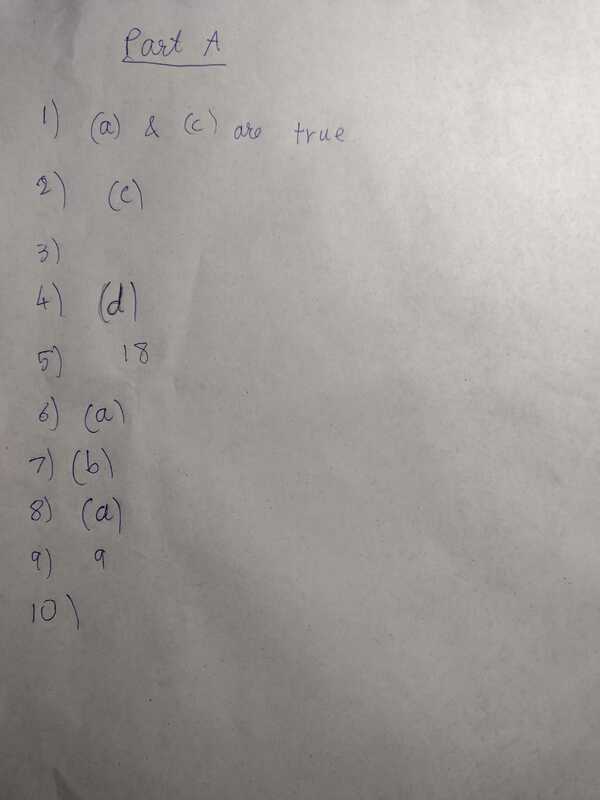 Part A
1) (a) & (c) are true
2) (c)
3)
4) (d)
5) 18
6) (a)
7) (b)
8) (d)
9) 9
10)